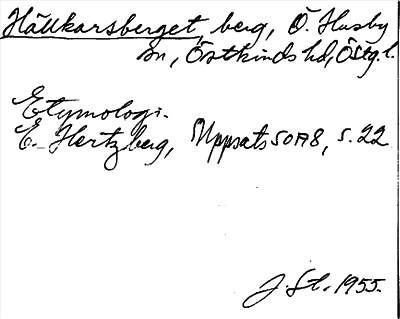 Hällkarsberget, berg, Ö. Husby
sn, Östkinds hd, Östg.l.
Etymologi.
E. Hertzberg, Uppsats SOA 8, s. 22
J. St. 1955.